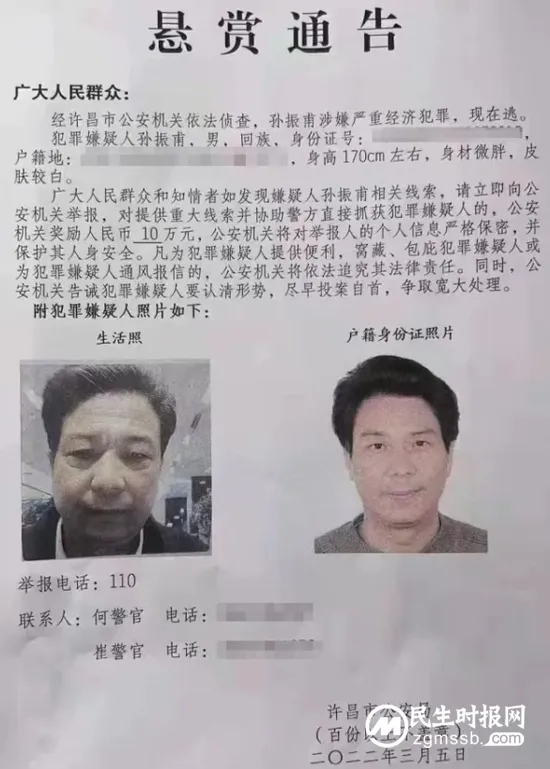 悬赏通告
广大人民群众：
经许昌市公安机关依法侦查，孙振甫涉嫌严重经济犯罪，现在逃。
犯罪嫌疑人孙振甫，男，回族，身份证号：
户籍地：，身高170cm左右，身材微胖，皮
肤较白。
广大人民群众和知情者如发现嫌疑人孙振甫相关线索，请立即向公
安机关举报，对提供重大线索并协助警方直接抓获犯罪嫌疑人的，公安
机关奖励人民币 10 万元，公安机关将对举报人的个人信息严格保密，并
保护其人身安全。凡为犯罪嫌疑人提供便利，窝藏、包庇犯罪嫌疑人或
为犯罪嫌疑人通风报信的，公安机关将依法追究其法律责任。同时，公
安机关告诫犯罪嫌疑人要认清形势，尽早投案自首，争取宽大处理。
附犯罪嫌疑人照片如下：
生活照
户籍身份证照片
举报电话：110
联系人：何警官 电话：
崔警官 电话：
许昌市公安局
（百份以上不盖章）
二〇二二年三月五日
民生时报网
zgmssb.com